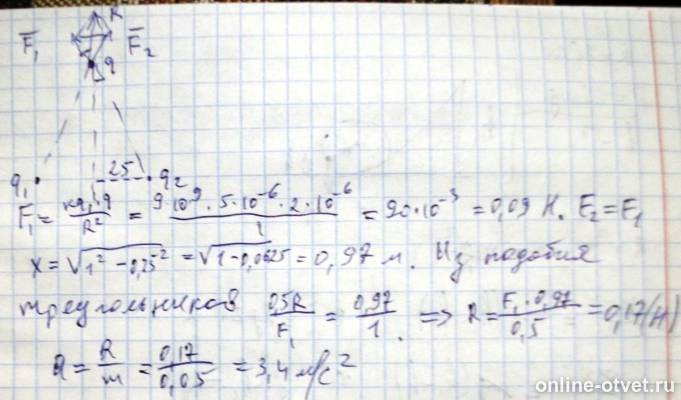 R
F̅₁ F̅₂
q
q₁ 25 q₂
F₁ = kq₁q / R² = 9·10⁹·5·10⁻⁶·2·10⁻⁶ / 1 = 90·10⁻³ = 0,09 Н. F₂ = F₁
x = √(1² − 0,25²) = √(1 − 0,0625) = 0,97 м. Из подобия
треугольников 0,5R / F₁ = 0,97 / 1. => R = F₁·0,97 / 0,5 = 0,17 (Н)
a = R / m = 0,17 / 0,05 = 3,4 м/с²
online-otvet.ru